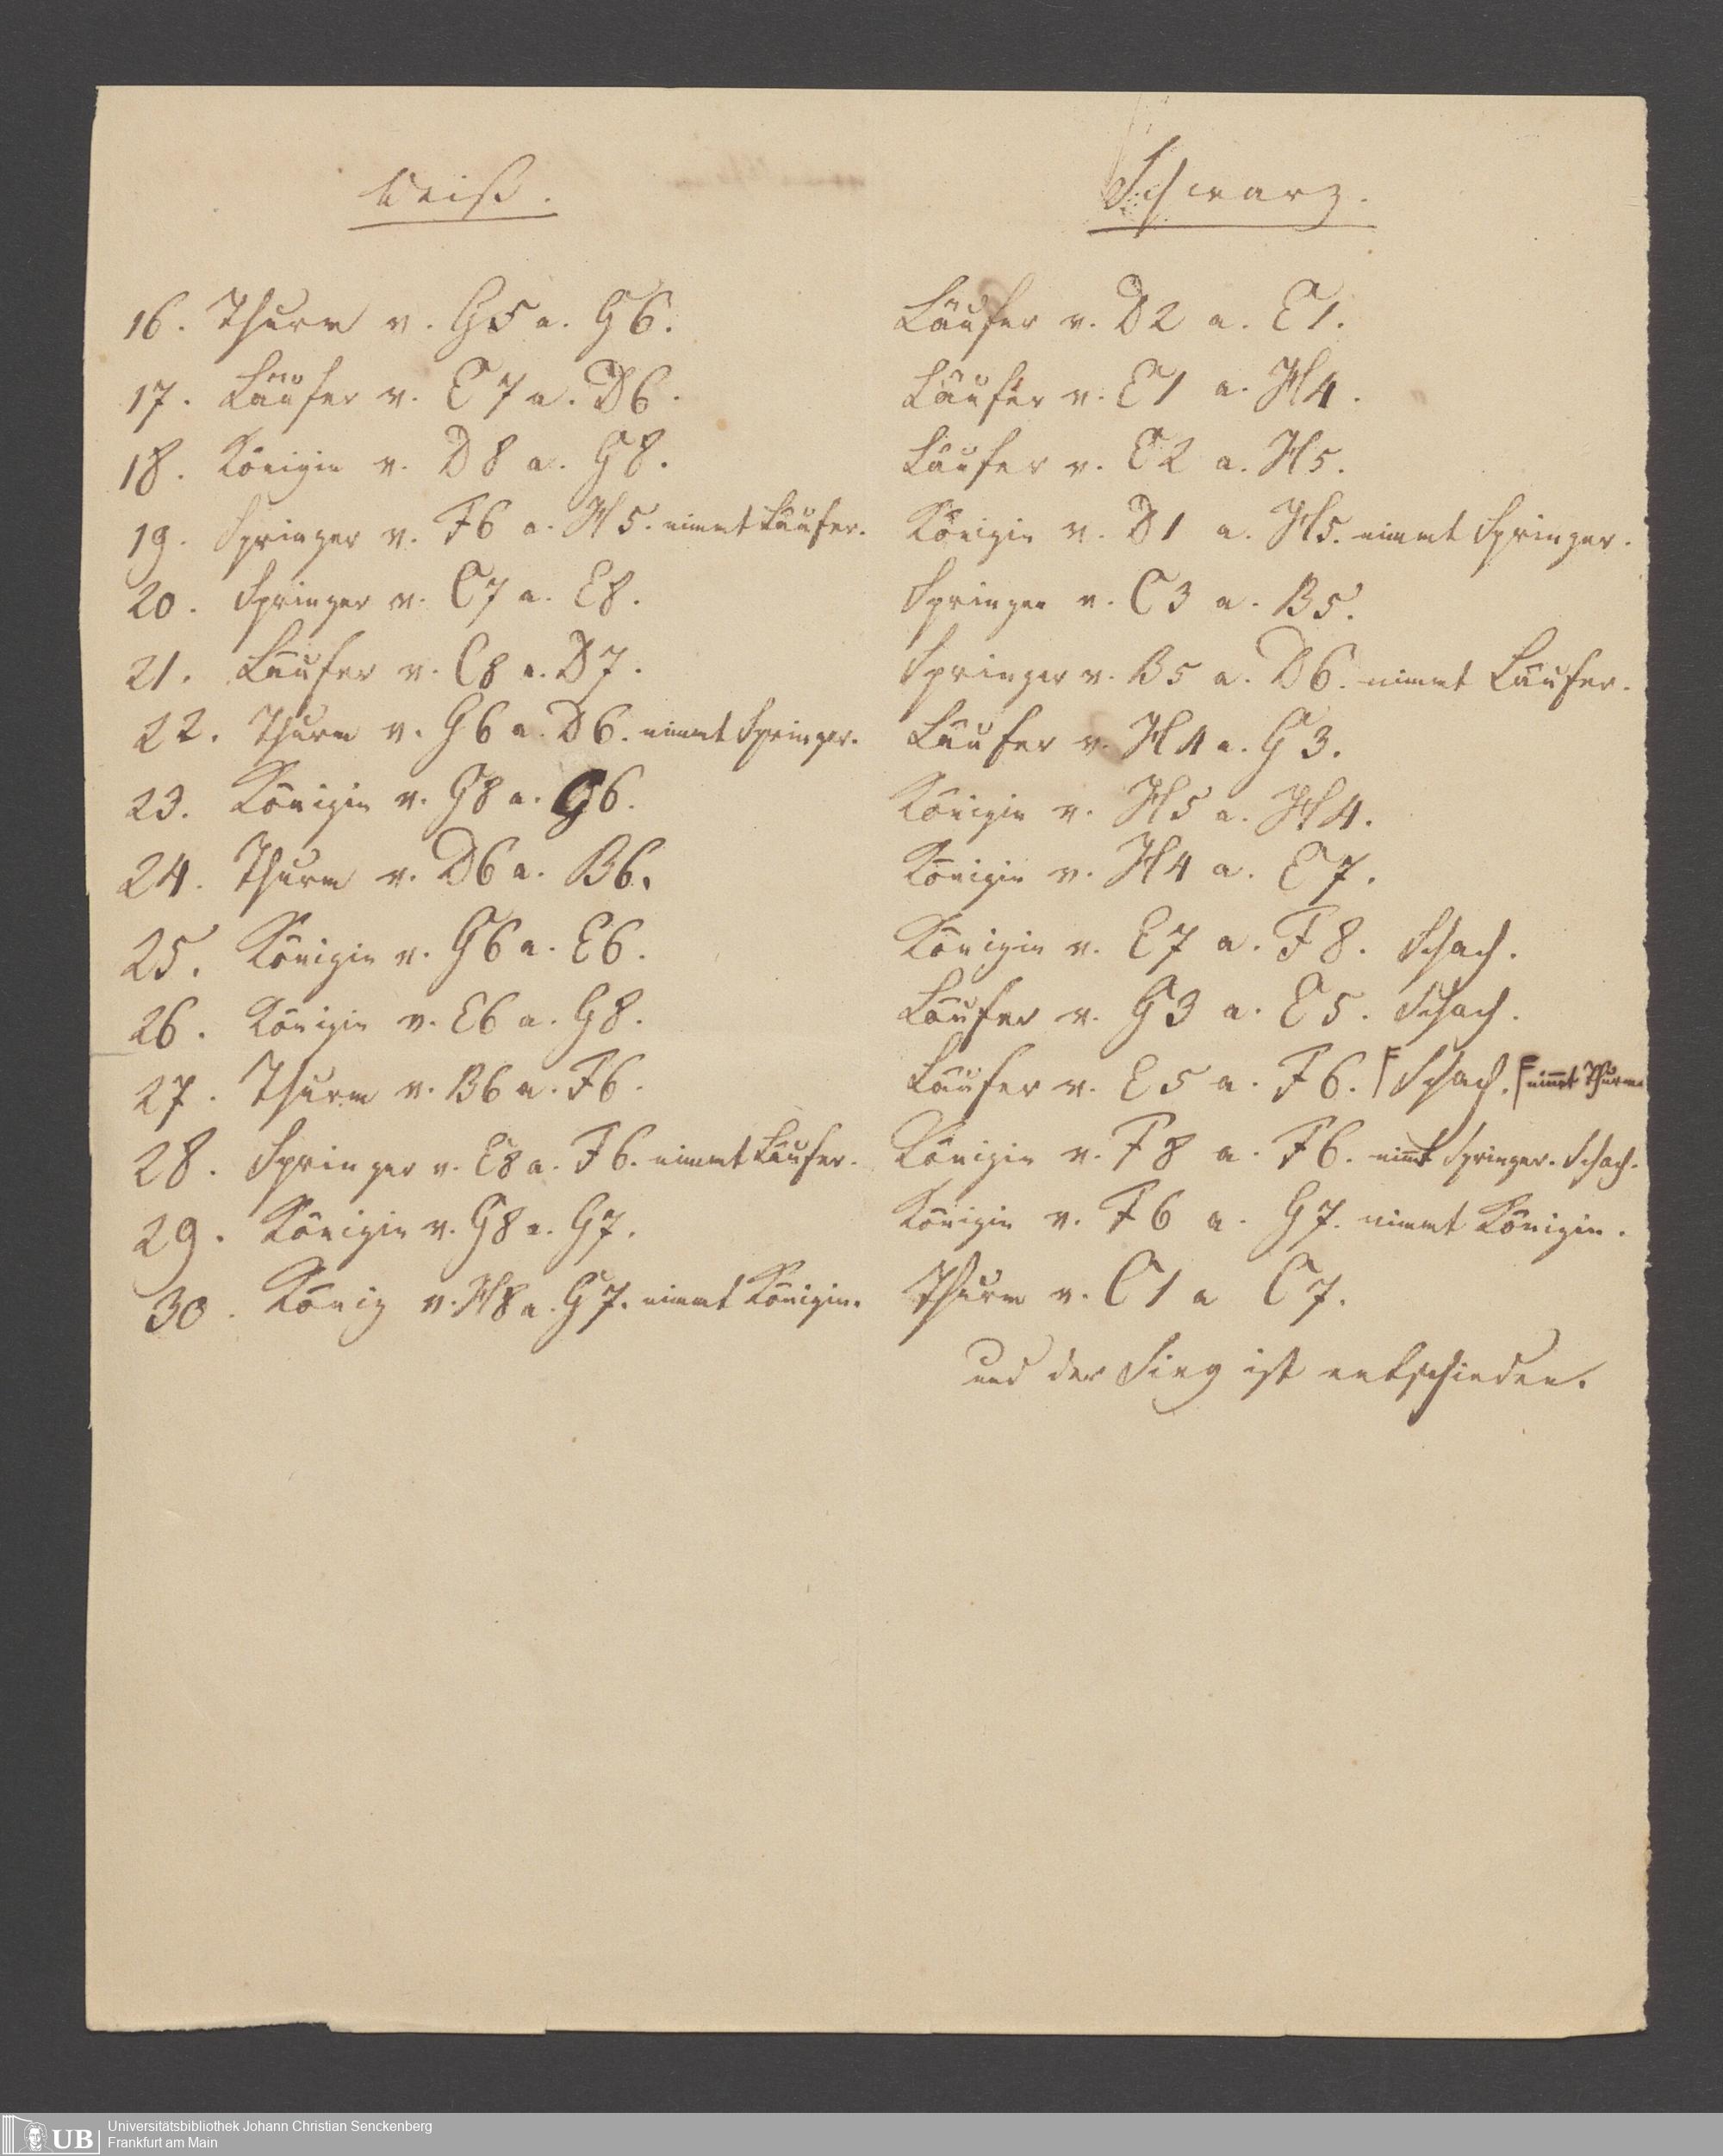 Weiß. Schwarz.
16. Thurm v. G5 a. G6. Läufer v. D2 a. E1.
17. Läufer v. E7 a. D6. Läufer v. E1 a. H4.
18. Königin v. D8 a. G8. Läufer v. E2 a. H5.
19. Springer v. F6 a. H5. nimmt Läufer. Königin v. D1 a. H5. nimmt Springer.
20. Springer v. C7 a. E8. Springer v. C3 a. B5.
21. Läufer v. C8 a. D7. Springer v. B5 a. D6. nimmt Läufer.
22. Thurm v. G6 a. D6. nimmt Springer. Läufer v. H4 a. G3.
23. Königin v. G8 a. G6. Königin v. H5 a. H4.
24. Thurm v. D6 a. B6. Königin v. H4 a. E7.
25. Königin v. G6 a. E6. Königin v. E7 a. F8. Schach.
26. Königin v. E6 a. G8. Läufer v. G3 a. E5. Schach.
27. Thurm v. B6 a. F6. Läufer v. E5 a. F6. Schach. nimmt Thurm
28. Springer v. E8 a. F6. nimmt Läufer. Königin v. F8 a. F6. nimmt Springer. Schach.
29. Königin v. G8 a. G7. Königin v. F6 a. G7. nimmt Königin.
30. König v. H8 a. G7. nimmt Königin. Thurm v. C1 a C7.
und der Sieg ist entschieden.
UB Universitätsbibliothek Johann Christian Senckenberg
Frankfurt am Main